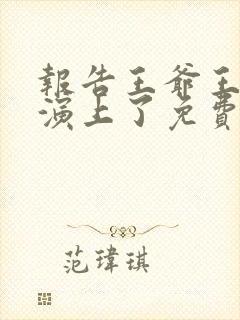 報告王爺王
演上了免費
范瑋琪